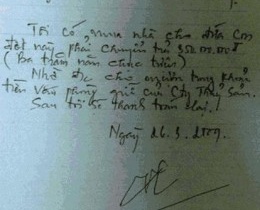 Tôi có mua nhà cho đứa con
đặt này phải chuyển trả 350.000.000đ
(Ba trăm năm chục triệu)
Nhờ Đc cho người trong khoản
tiền Văn phòng quỹ của Cty Thủy Sản.
Sau tôi sẽ thanh toán lại.
Ngày 26.3.2007.